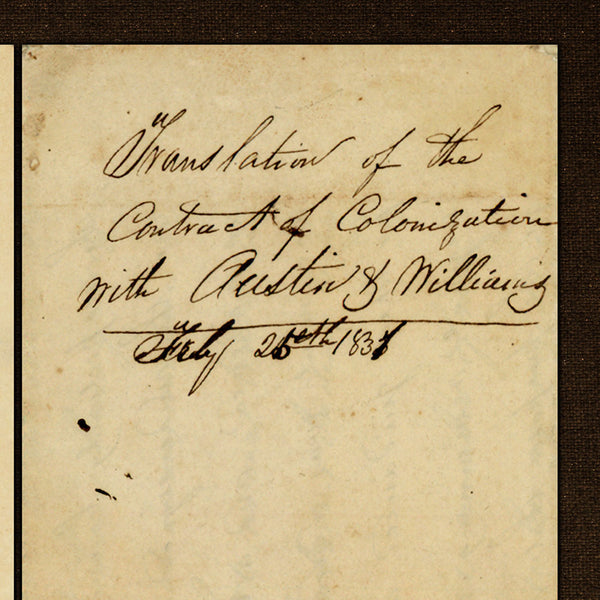 Translation of the
Contract of Colonization
with Austin & Williams
Feby 25th 1831